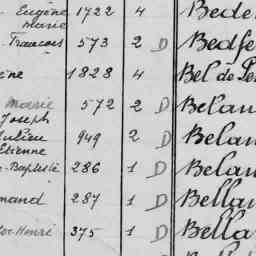 Eugène 1722 4 Bede
Marie
François 573 2 D Bedfe
ène 1828 4 Bel de Pe
Marie 572 2 D Belan
Joseph
Julien 949 2 D Belan
Etienne
-Baptiste 286 1 D Belan
mand 287 1 D Bellan
Henri 375 1 D Bella